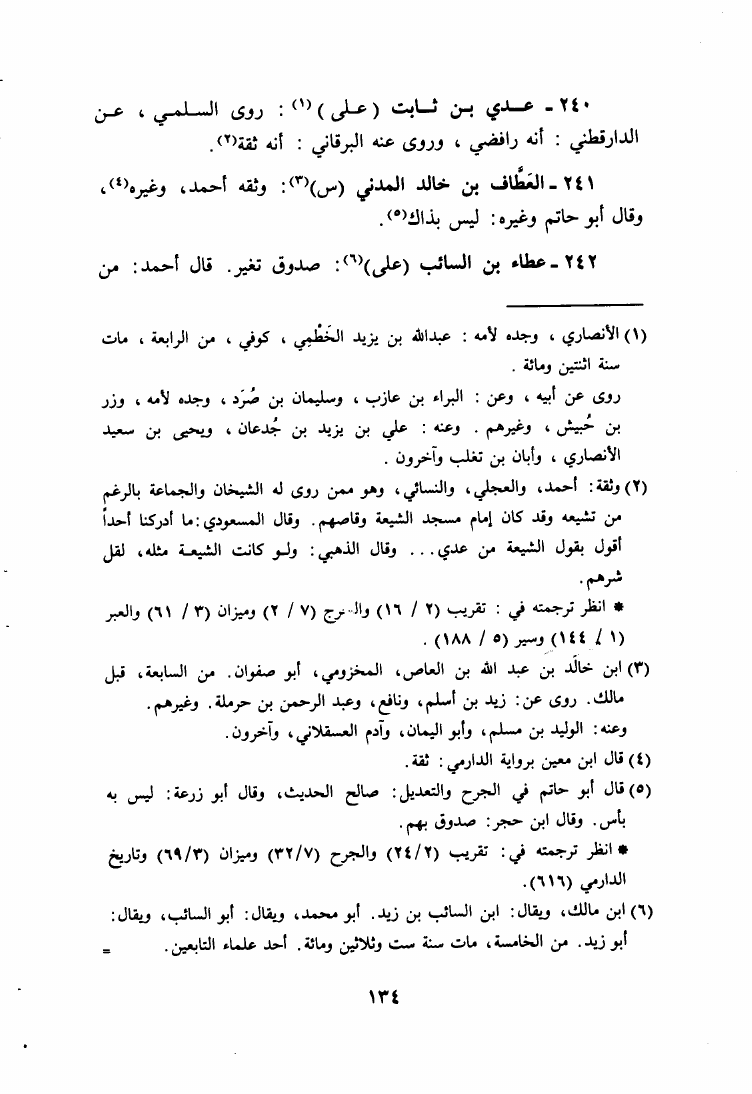 ٢٤٠ ـ عـــدي بـن ثـــابت (عـلى)(١) : روى السـلمـي ، عـن
الدارقطني : أنه رافضي ، وروى عنه البرقاني : أنه ثقة(٢).
٢٤١ ـ العَطَّاف بن خالد المدني (س)(٣): وثقه أحمد، وغيره(٤)،
وقال أبو حاتم وغيره: ليس بذاك(٥).
٢٤٢ ـ عطاء بن السائب (على)(٦): صدوق تغير. قال أحمد: من
(١) الأنصاري ، وجده لأمه : عبدالله بن يزيد الخَطْمِي ، كوفي ، من الرابعة ، مات
سنة اثنتين ومائة .
روى عن أبيه ، وعن : البراء بن عازب ، وسليمان بن صُرَد ، وجده لأمه ، وزر
بن حُبيش ، وغيرهم . وعنه : علي بن يزيد بن جُدعان ، ويحيى بن سعيد
الأنصاري ، وأبان بن تغلب وآخرون .
(٢) وثقة: أحمد، والعجلي، والنسائي، وهو ممن روى له الشيخان والجماعة بالرغم
من تشيعه وقد كان إمام مسجد الشيعة وقاصهم. وقال المسعودي: ما أدركنا أحداً
أقول بقول الشيعة من عدي... وقال الذهبي: ولـو كانت الشيعـة مثله، لقل
شرهم.
* انظر ترجمته في : تقريب (٢ / ١٦) والجرح (٧ / ٢) وميزان (٣ / ٦١) والعبر
(١ / ١٤٤) وسير (٥ / ١٨٨) .
(٣) ابن خالد بن عبد الله بن العاص، المخزومي، أبو صفوان. من السابعة، قبل
مالك. روى عن: زيد بن أسلم، ونافع، وعبد الرحمن بن حرملة. وغيرهم.
وعنه: الوليد بن مسلم، وأبو اليمان، وآدم العسقلاني، وآخرون.
(٤) قال ابن معين برواية الدارمي: ثقة.
(٥) قال أبو حاتم في الجرح والتعديل: صالح الحديث، وقال أبو زرعة: ليس به
بأس. وقال ابن حجر: صدوق يهم.
* انظر ترجمته في: تقريب (٢٤/٢) والجرح (٣٢/٧) وميزان (٦٩/٣) وتاريخ
الدارمي (٦١٦).
(٦) ابن مالك، ويقال: ابن السائب بن زيد. أبو محمد، ويقال: أبو السائب، ويقال:
أبو زيد. من الخامسة، مات سنة ست وثلاثين ومائة. أحد علماء التابعين. =
١٣٤